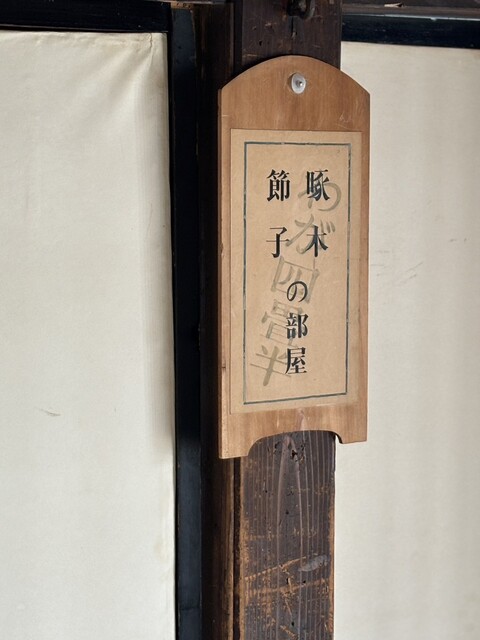 啄木
節子
の部屋
わが四畳半